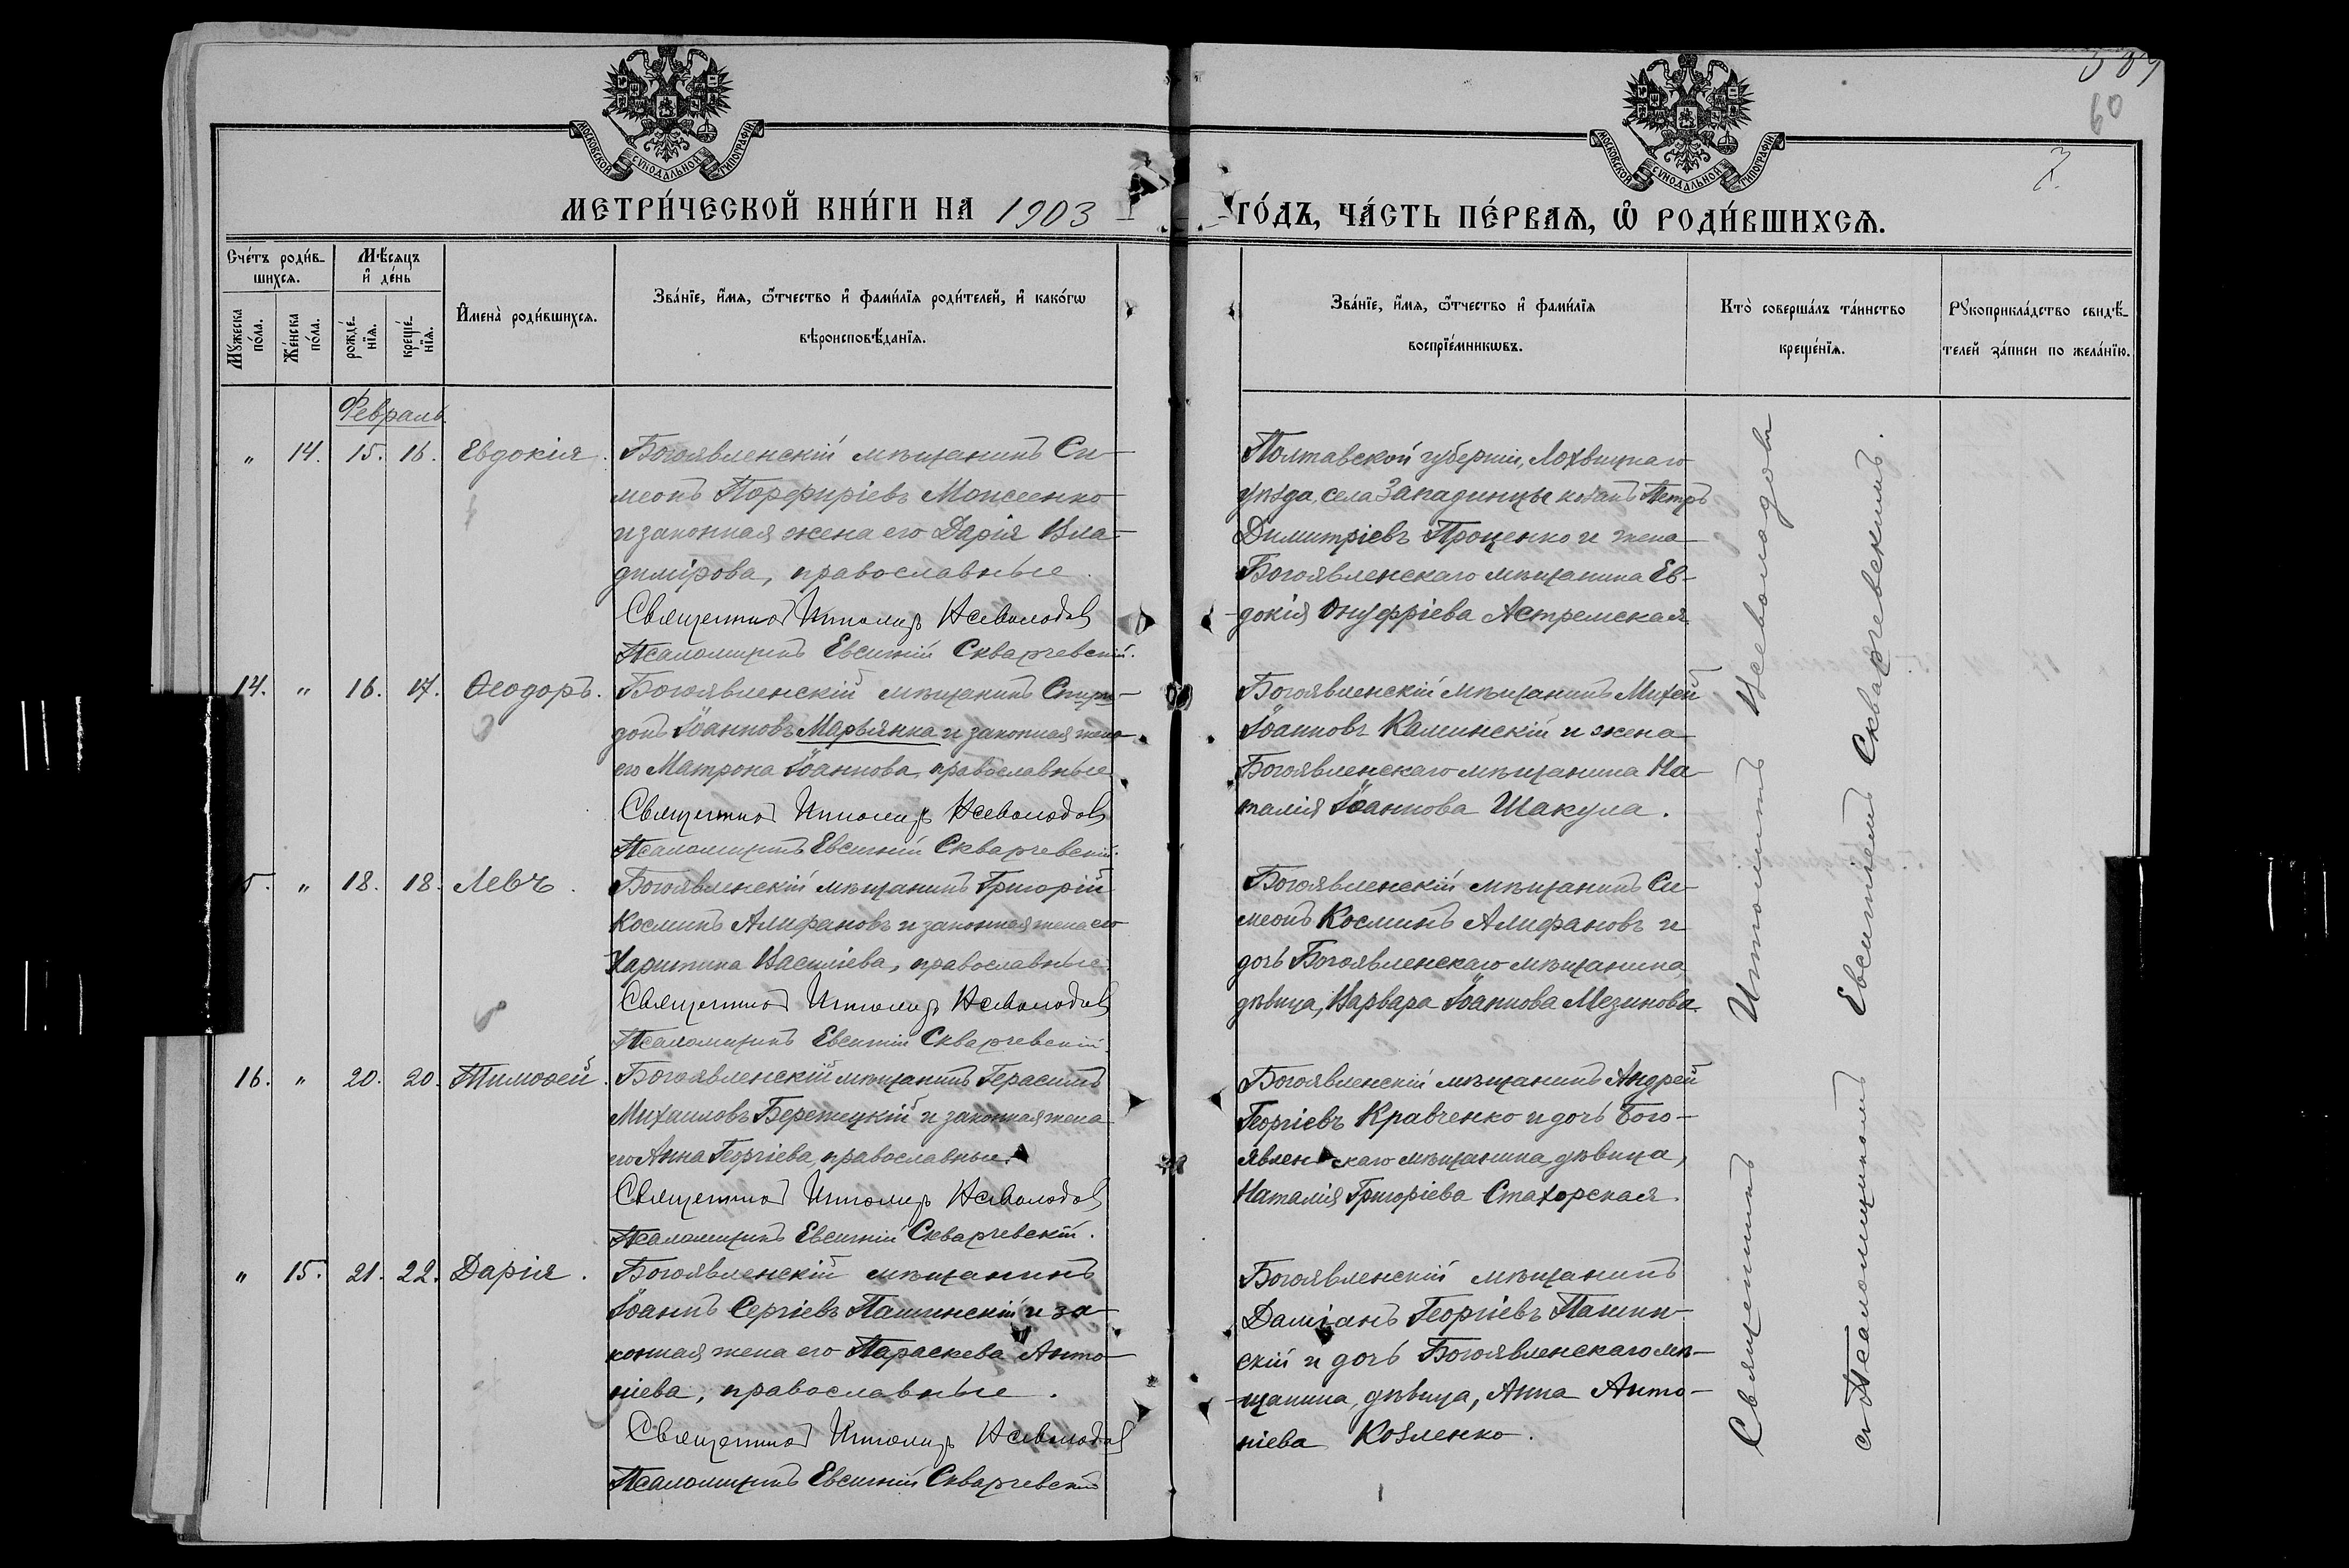 587
60
7.
МОСКОВСКОЙ СѴНОДАЛЬНОЙ ТИПОГРАФІИ
МОСКОВСКОЙ СѴНОДАЛЬНОЙ ТИПОГРАФІИ
МЕТРИ́ЧЕСКОЙ КНИ́ГИ НА 1903 ГО́ДЪ, ЧА́СТЬ ПЕ́РВАѦ, Ѡ҆ РОДИ́ВШИХСѦ.
Сче́тъ роди́в-
шихсѧ.
Мꙋ́жеска
по́ла.
Же́нска
по́ла.
Мѣ́сѧцъ
и҆ де́нь
рожде́-
нїѧ.
креще́-
нїѧ.
И҆мена̀ роди́вшихсѧ.
Зва́нїе, и҆́мѧ, ѻ҆́тчество и҆ фами́лїѧ роди́телей, и҆ како́гѡ
вѣроисповѣ́данїѧ.
Зва́нїе, и҆́мѧ, ѻ҆́тчество и҆ фами́лїѧ
воспрїе́мникѡвъ.
Кто̀ соверша́лъ та́инство
креще́нїѧ.
Рꙋкоприкла́дство свидѣ́-
телей за́писи по жела́нїю.
Февраль.
" 14. 15. 16. Евдокія.
Богоявленскій мѣщанинъ Си-
меонъ Порфиріевъ Моисеенко
и законная жена его Дарія Вла-
димірова, православные.
Священникъ Ипполитъ Всеволодовъ
Псаломщикъ Евсигній Скварчевскій.
Полтавской губерніи, Лохвицкаго
уѣзда, села Западинцы козакъ Петръ
Димитріевъ Проценко и жена
Богоявленскаго мѣщанина Ев-
докія Онуфріева Астремская
14. " 16. 17. Ѳеодоръ.
Богоявленскій мѣщанинъ Спири-
донъ Іоанновъ Марьянка и законная жена
его Матрона Іоаннова, православные
Священникъ Ипполитъ Всеволодовъ
Псаломщикъ Евсигній Скварчевскій.
Богоявленскій мѣщанинъ Михей
Іоанновъ Каминскій и жена
Богоявленскаго мѣщанина На-
талія Іоаннова Шакула.
5. " 18. 18. Левъ.
Богоявленскій мѣщанинъ Григорій
Косминъ Алифановъ и законная жена его
Харитина Василіева, православные.
Священникъ Ипполитъ Всеволодовъ
Псаломщикъ Евсигній Скварчевскій.
Богоявленскій мѣщанинъ Си-
меонъ Косминъ Алифановъ и
дочь Богоявленскаго мѣщанина,
дѣвица, Варвара Іоаннова Мезинова.
16. " 20. 20. Тимоѳей.
Богоявленскій мѣщанинъ Герасимъ
Михаиловъ Бережецкій и законная жена
его Анна Георгіева, православные.
Священникъ Ипполитъ Всеволодовъ
Псаломщикъ Евсигній Скварчевскій.
Богоявленскій мѣщанинъ Андрей
Георгіевъ Кравченко и дочь Бого-
явленскаго мѣщанина, дѣвица,
Наталія Григоріева Стахорская.
" 15. 21. 22. Дарія.
Богоявленскій мѣщанинъ
Іоаннъ Сергіевъ Пашинскій и за-
конная жена его Параскева Анто-
ніева, православные.
Священникъ Ипполитъ Всеволодовъ
Псаломщикъ Евсигній Скварчевскій
Богоявленскій мѣщанинъ
Даміанъ Георгіевъ Пашин-
скій и дочь Богоявленскаго мѣ-
щанина, дѣвица, Анна Анто-
ніева Козленко.
Священникъ Ипполитъ Всеволодовъ
съ Псаломщикомъ Евсигніемъ Скварчевскимъ.